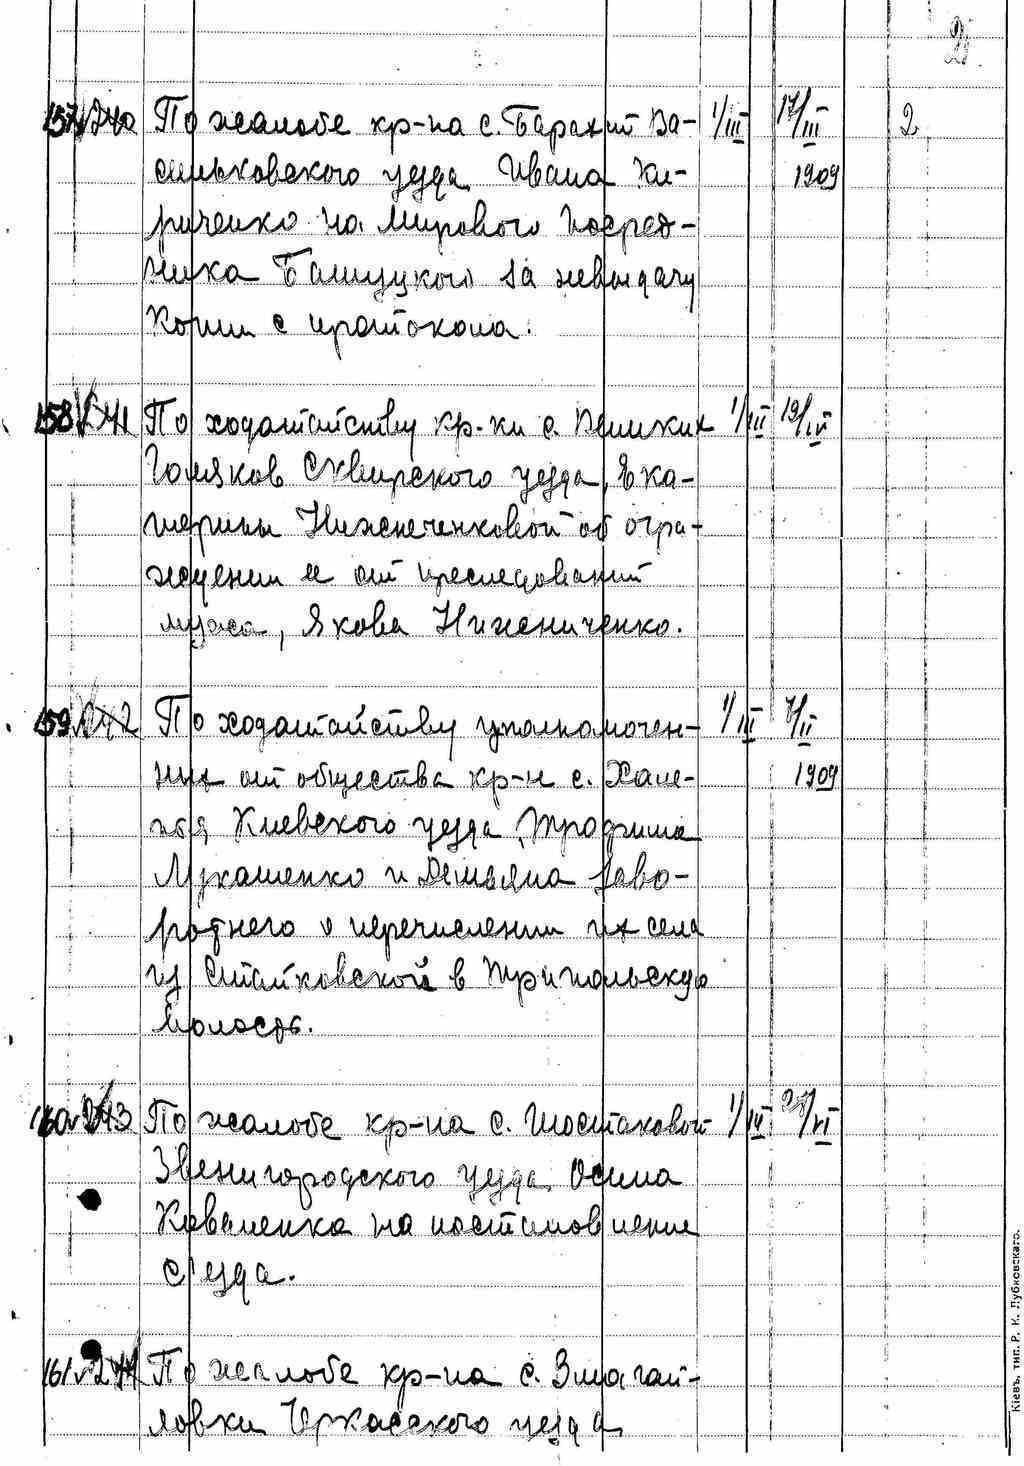 157 240 По жалобе кр-на с. Барахт Ва- 1/III 17/III 2
сильковского уезда Ивана Ки- 1909
риченко на Мирового Посред-
ника Башуцкого за невыдачу
копии с протокола.
158 241 По ходатайству кр-ки с. Великих 1/III 19/IV
Голяков Сквирского уезда, Ека-
терины Нижнеченковой об огра-
ждении ее от преследований
мужа, Якова Нижениченко.
159 242 По ходатайству уполномочен- 1/III 7/II
ных от общества кр-н с. Хале- 1909
пья Киевского уезда Трофима
Лукашенко и Демьяна Заво-
ротнего о перечислении их села
из Стайковской в Трипольскую
волость.
160 243 По жалобе кр-на с. Шостаковой 1/III /VI
Звенигородского уезда Осипа
Коваленка на постановление
с'езда.
161 244 По жалобе кр-на с. Змагай-
ловки Черкасского уезда
Кіевъ, тип. Р. К. Лубковскаго.